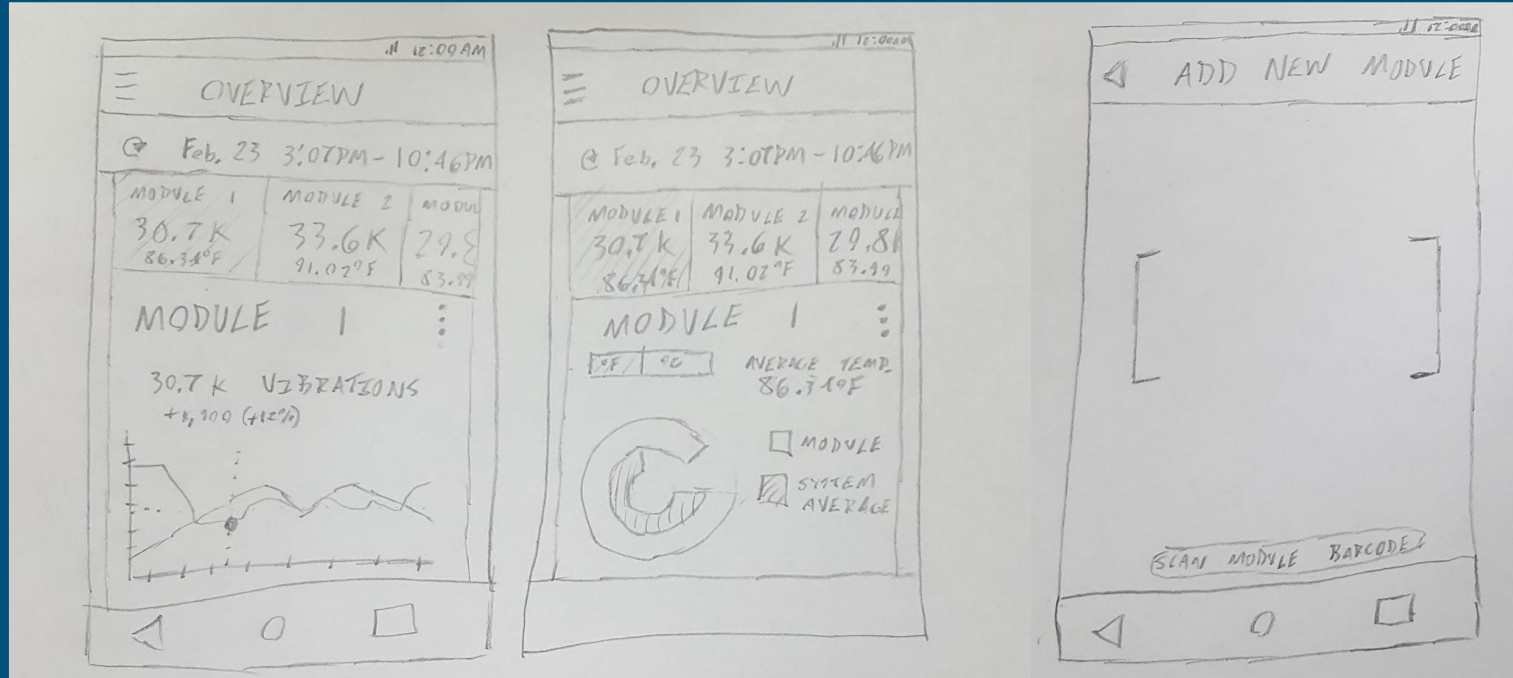 12:00 AM
OVERVIEW
@ Feb. 23 3:07PM - 10:46PM
MODULE 1
30.7 K
86.31°F
MODULE 2
33.6 K
91.02°F
MODUL
29.8
83.99
MODULE 1
30.7 K VIBRATIONS
(+12%)
12:00AM
OVERVIEW
@ Feb. 23 3:07PM - 10:46PM
MODULE 1
30.7 K
86.31°F
MODULE 2
33.6 K
91.02°F
MODULE
29.8
83.99
MODULE 1
°F °C
AVERAGE TEMP.
86.31°F
MODULE
SYSTEM
AVERAGE
12:00AM
ADD NEW MODULE
SCAN MODULE BARCODE